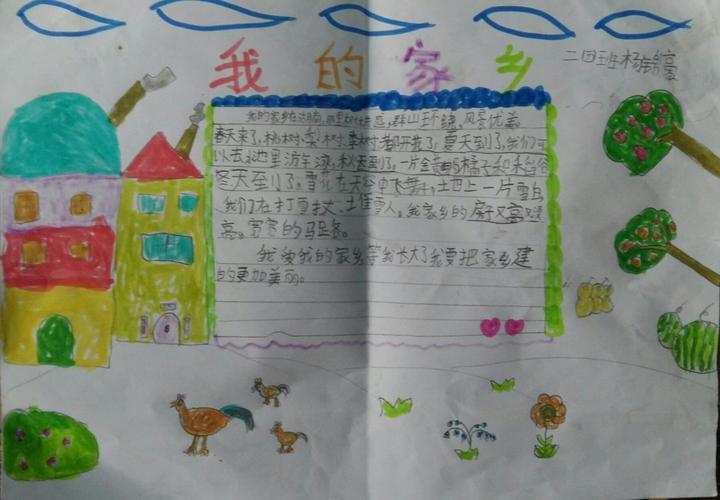 我的家乡
二四班杨锦豪
我的家乡在 群山环绕,风景优美。
春天来了,桃树、梨树、李树都开花了,夏天到了,我们可
以去池里游泳,秋天到了,一片金黄的橘子和稻谷
冬天到了,雪花在天空中飞舞,土地上一片雪白
我们在打雪仗、堆雪人。我家乡的房又高又
高。宽宽的马路。
我爱我的家乡等我长大了我要把家乡建
的更加美丽。